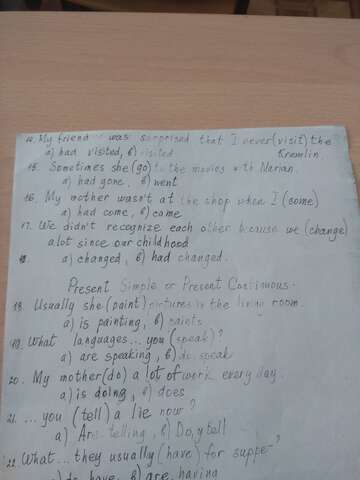 14. My friend was surprised that I never (visit) the
a) had visited, b) visited Kremlin.
15. Sometimes she (go) to the movies with Marian.
a) had gone, b) went
16. My mother wasn't at the shop when I (come)
a) had come, b) came
17. We didn't recognize each other because we (change)
a lot since our childhood
a) changed, b) had changed.
Present Simple or Present Continuous.
18. Usually she (paint) pictures in the living room.
a) is painting, b) paints
19. What languages... you (speak)?
a) are speaking, b) do speak
20. My mother (do) a lot of work every day.
a) is doing, b) does
21. ... you (tell) a lie now?
a) Are telling, b) Do, y tell
22. What ... they usually (have) for suppe-?
a) do have, b) are, having